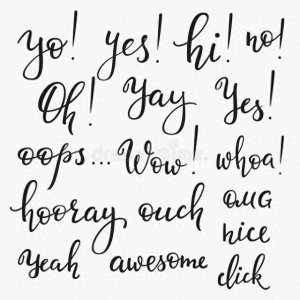 yo! yes! hi! no!
Oh! Yay Yes!
oops... Wow! whoa!
hooray ouch OMG
nice
Yeah awesome click